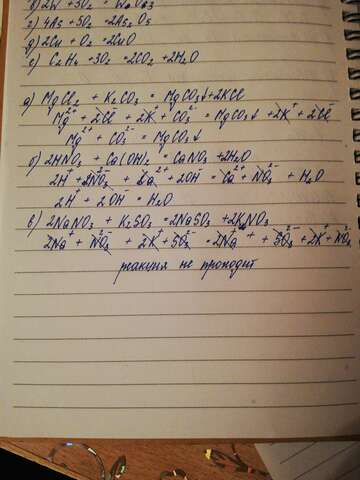 г) 4As + 5O₂ = 2As₂O₅
д) 2Cu + O₂ = 2CuO
е) C₂H₄ + 3O₂ = 2CO₂ + 2H₂O
а) MgCl₂ + K₂CO₃ = MgCO₃↓ + 2KCl
Mg²⁺ + 2Cl⁻ + 2K⁺ + CO₃²⁻ = MgCO₃↓ + 2K⁺ + 2Cl⁻
Mg²⁺ + CO₃²⁻ = MgCO₃↓
б) 2HNO₃ + Ca(OH)₂ = CaNO₃ + 2H₂O
2H⁺ + 2NO₃²⁻ + Ca²⁺ + 2OH⁻ = Ca²⁺ + NO₃²⁻ + H₂O
2H⁺ + 2OH⁻ = H₂O
в) 2NaNO₃ + K₂SO₃ = 2NaSO₃ + 2KNO₃
2Na⁺ + NO₃²⁻ + 2K⁺ + SO₃²⁻ = 2Na⁺ + SO₃²⁻ + 2K⁺ + NO₃
реакция не проходит